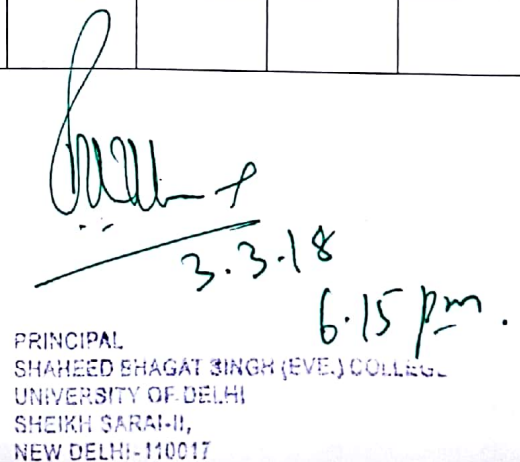 3.3.18
6.15 pm.
PRINCIPAL
SHAHEED BHAGAT SINGH (EVE.) COLLEGE
UNIVERSITY OF DELHI
SHEIKH SARAI-II,
NEW DELHI-110017